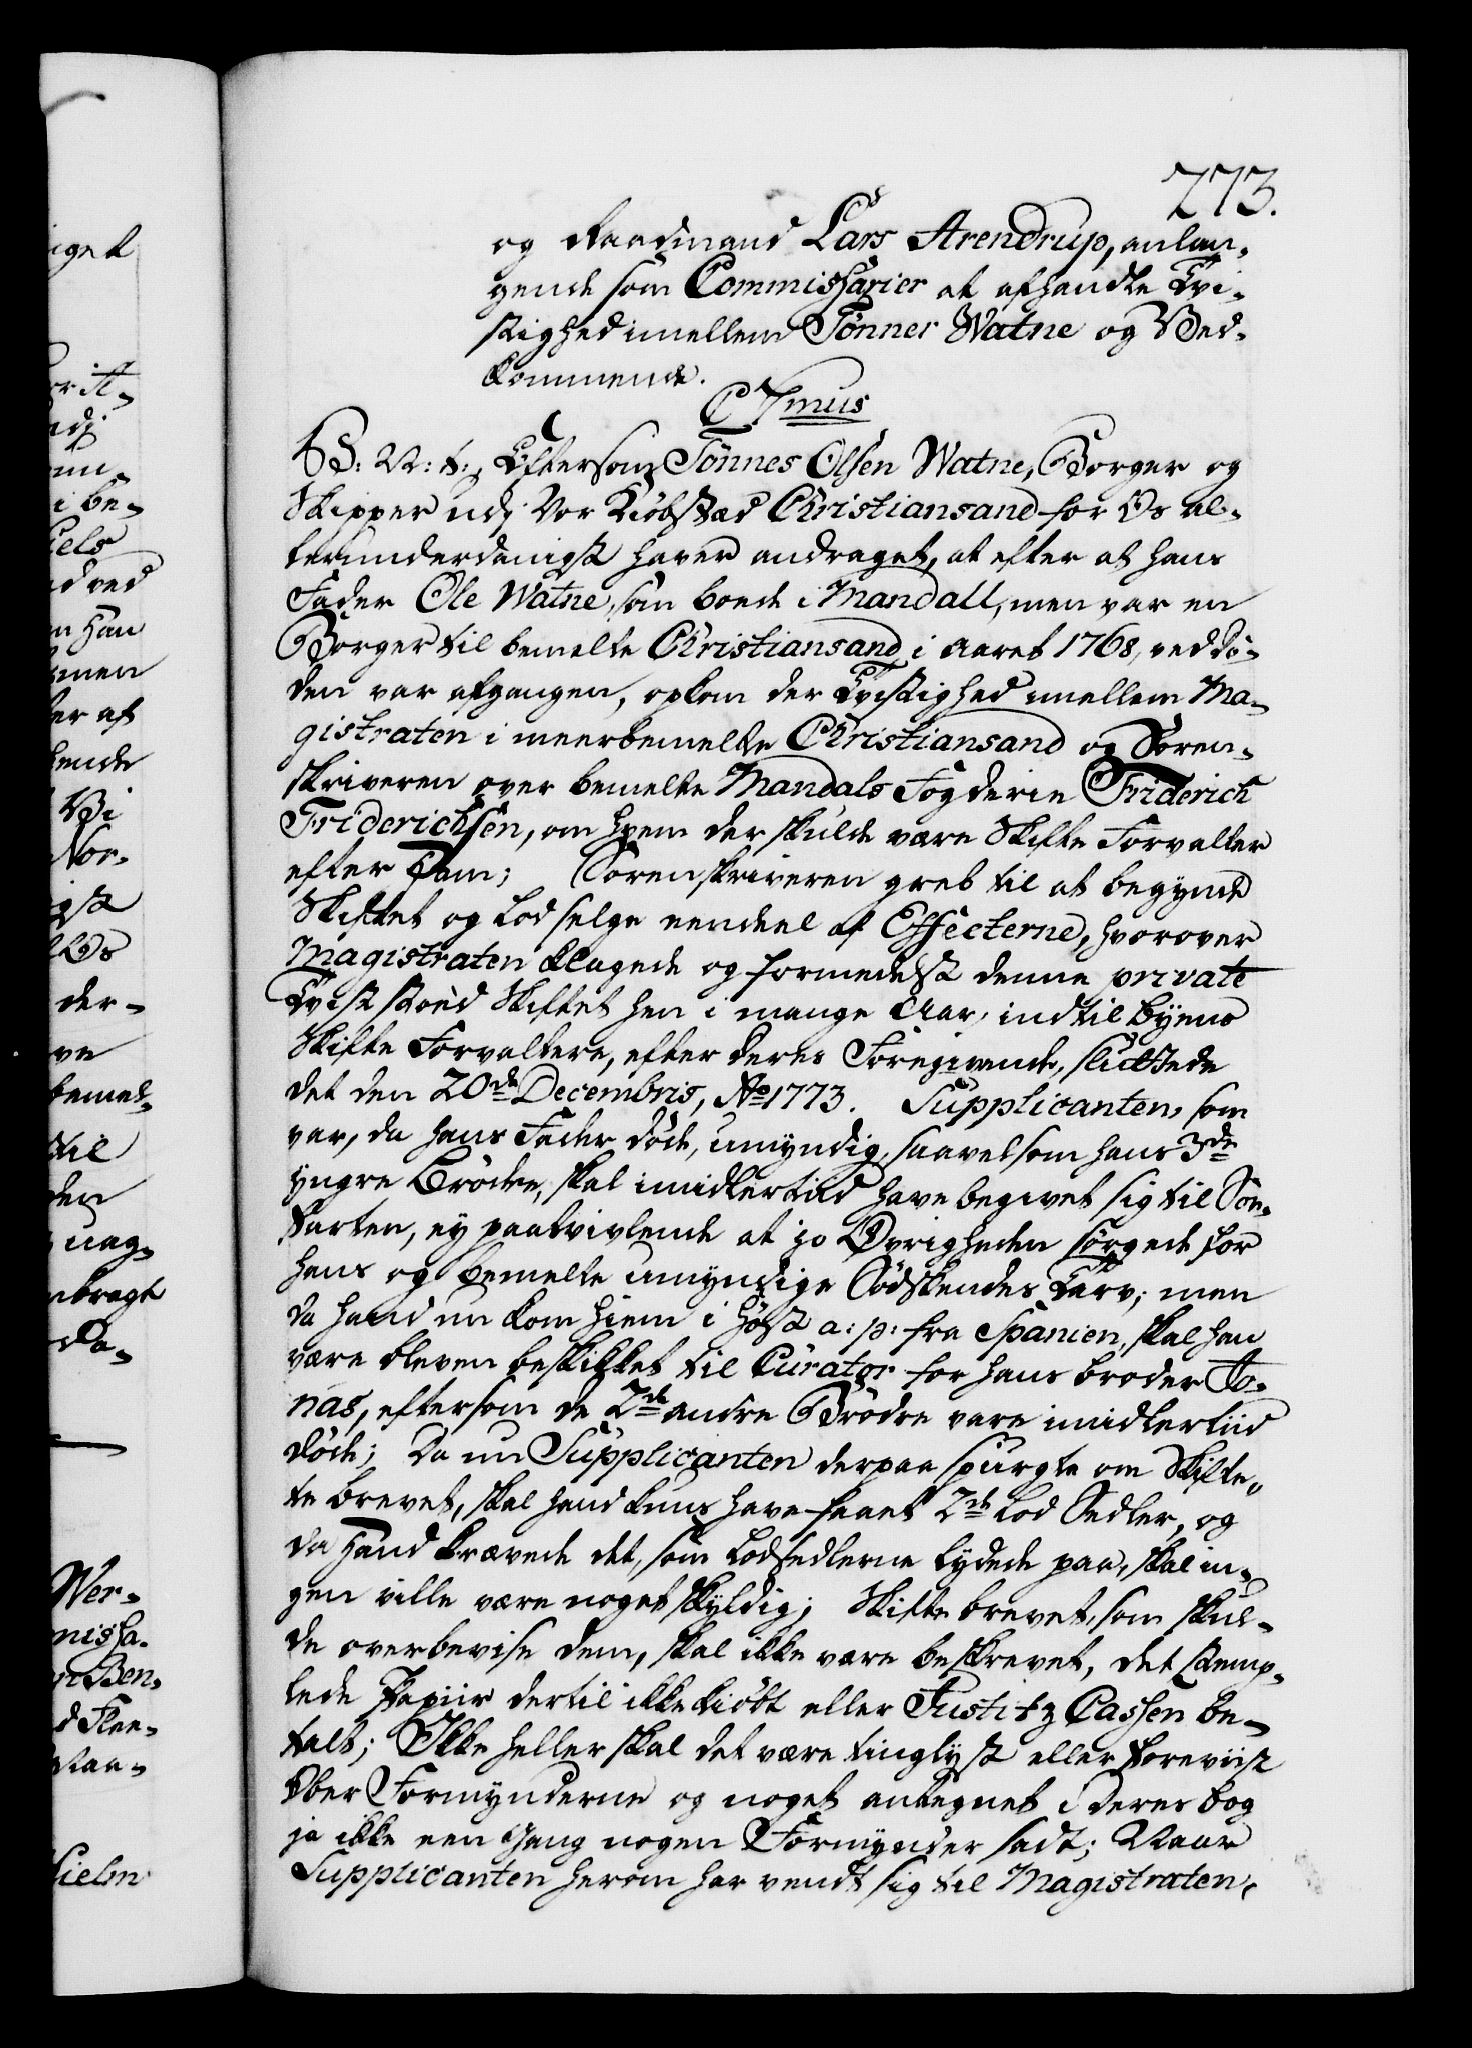 273.
og Raadmand Lars Arendrup, anlan-
gende som Commissarier at afhandle Tvi-
stighed imellem Tönner Watne og Ved-
kommende.
C 7mus
G: V: t:, Eftersom Tönnes Olsen Watne, Borger og
Skipper udj Vor Kiöbstæd Christiansand for Os al-
lerunderdanigst haver andraget, at efter at hans
Fader Ole Watne, som boede i Mandall, men var en
Borger til bemelte Christiansand, i Aaret 1768, ved dö-
den var afgangen, opkom der Tvistighed imellem Ma-
gistraten i meerbemelte Christiansand og Soren-
skriveren over bemelte Mandals Fogderie Friderich
Friderichsen, om hvem der skulde være Skifte Forvalter
efter ham; Sorenskriveren greb til at begynde
Skiftet og lod selge eendeel af Effecterne, hvorover
Magistraten klagede og formedelst denne private
Tvist stoed Skiftet hen i mange Aar, indtil Byens
Skifte Forvaltere, efter deres Foregivende, sluttede
det den 20de Decembris, Ao 1773. Supplicanten, som
var, da hans Fader döde, umyndig, saavelsom hans 3de
yngre Brödre, skal imidlertiid have begivet sig til Söe-
farten, ey paatvivlende at jo Övrigheden sörgede for
hans og bemelte umyndige Södskendes Tarv; men
da hand nu kom hiem i Höst a: p: fra Spanien, skal han
være bleven beskikket til Curator for hans broder Jo-
nas, eftersom de 2de andre Brödre vare imidlertiid
döde; Da nu Supplicanten derpaa spurgte om Skifte-
te brevet, skal hand kuns have faaet 2de Lod Sedler, og
da Hand krævede det, som Lodsedlerne lydede paa, skal in-
gen ville være noget skyldig; Skifte brevet, som skul-
de overbevise dem, skal ikke være beskrevet, det stemp-
lede Papiir dertil ikke kiöbt eller Justitz Cassen be-
talt; Ikke heller skal det være tinglyst eller foreviist
Ober Formynderne og noget antegnet i deres bog
ja ikke een Gang nogen Formynder sadt; Naar
Supplicanten herom har vendt sig til Magistraten,